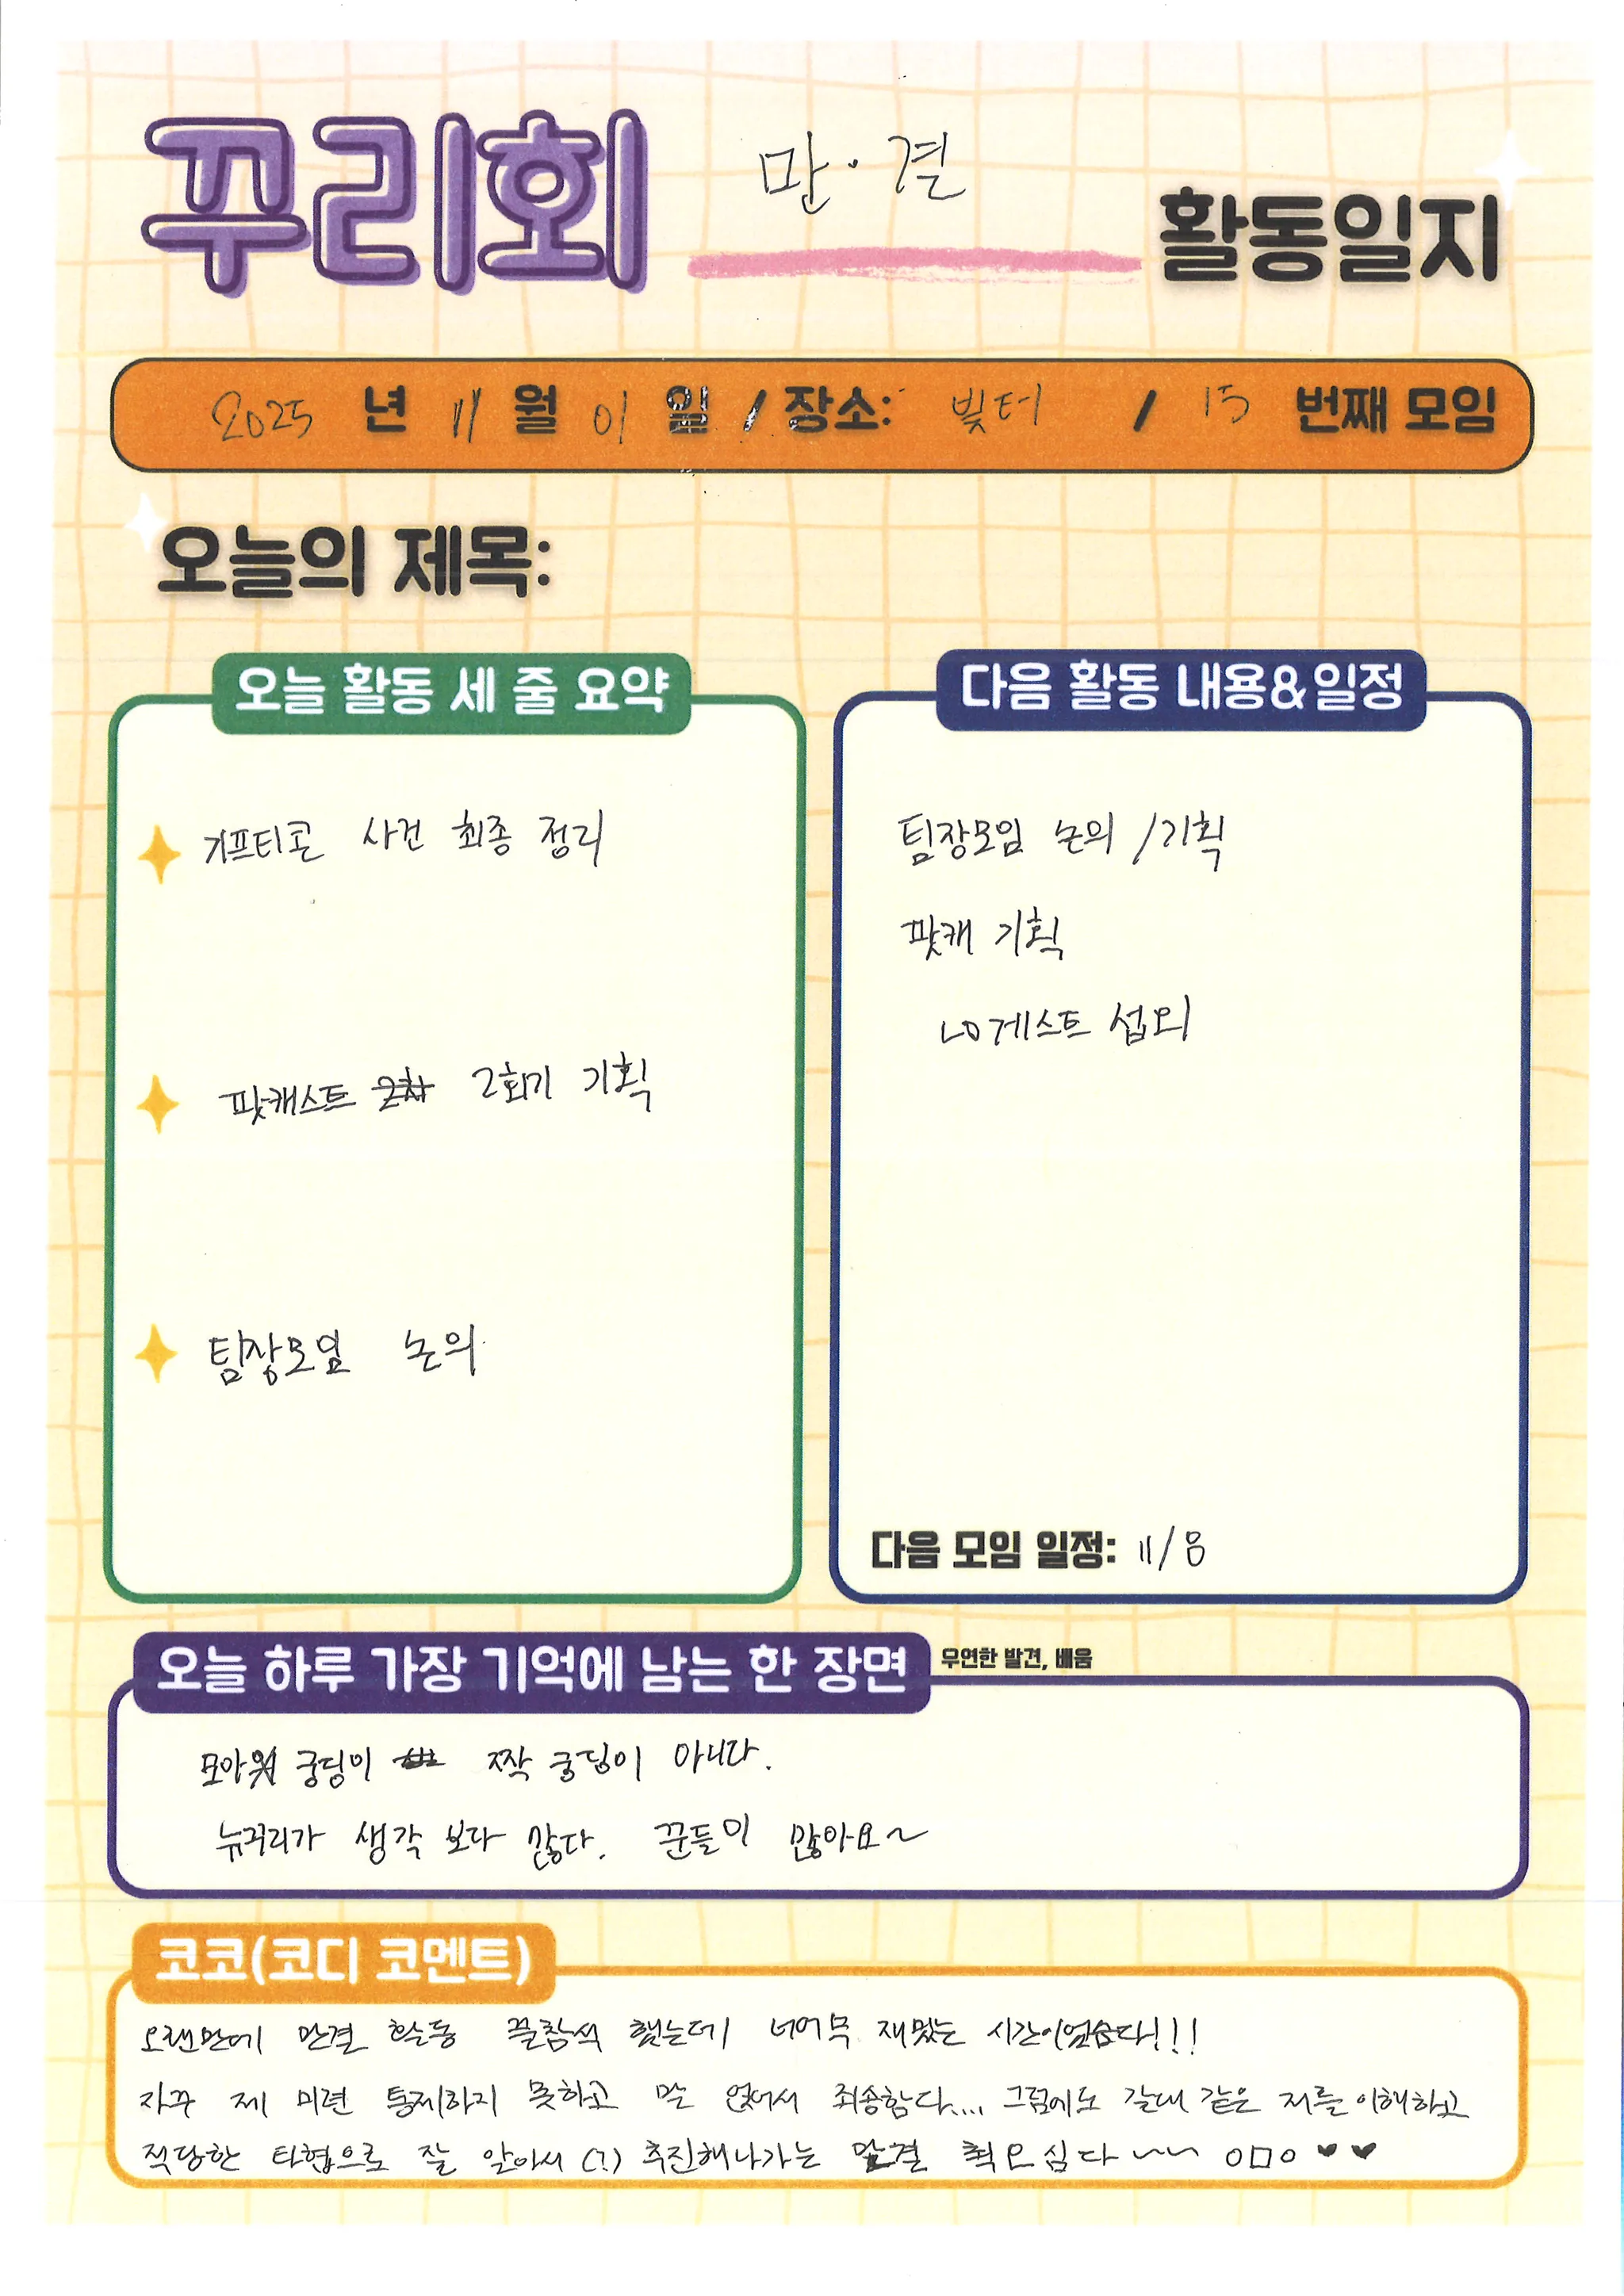 꾸리회 만·결 활동일지
2025 년 11 월 01 일 / 장소: 빛터 / 15 번째 모임
오늘의 제목:
오늘 활동 세 줄 요약
기프티콘 사건 최종 정리
팟캐스트 2차 2회기 기획
팀장모임 논의
다음 활동 내용&일정
팀장모임 논의 / 기획
팟캐 기획
게스트 섭외
다음 모임 일정: 11/8
오늘 하루 가장 기억에 남는 한 장면 우연한 발견, 배움
모아 궁딩이 짝 궁딩이 아니다.
뉴꾸리가 생각 보다 많다. 꾼들이 많아요~
코코(코디 코멘트)
오랜만에 만결 활동 풀참석 했는데 너어무 재밌는 시간이었슴다!!!
자꾸 제 미련 통제하지 못하고 말 얹어서 죄송함다... 그럼에도 갈대 같은 저를 이해하고
적당한 타협으로 잘 알아서 (?) 추진해나가는 만결 최고심다 ~~ ㅇㅁㅇ ♥♥